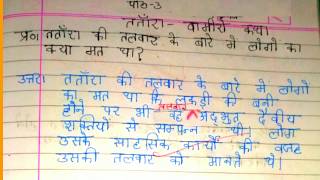 पाठ-3
ततांरा- वामीरो कथा
प्र०1 ततांरा की तलवार के बारे में लोगों का
क्या मत था?
उत्तर: ततांरा की तलवार के बारे में लोगों
का मत था कि लकड़ी की बनी
होने पर भी वह तलवार अद्भुत दैवीय
शक्तियों से सम्पन्न थी। लोग
उसके साहसिक कार्यों की वजह
उसकी तलवार को मानते थे।